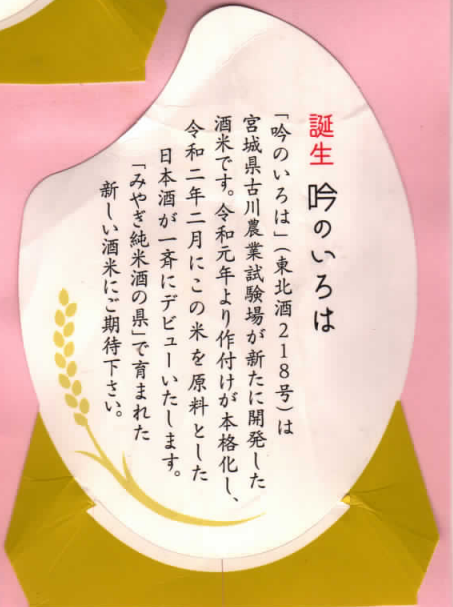 誕生 吟のいろは
「吟のいろは」(東北酒218号)は
宮城県古川農業試験場が新たに開発した
酒米です。令和元年より作付けが本格化し、
令和二年二月にこの米を原料とした
日本酒が一斉にデビューいたします。
「みやぎ純米酒の県」で育まれた
新しい酒米にご期待下さい。